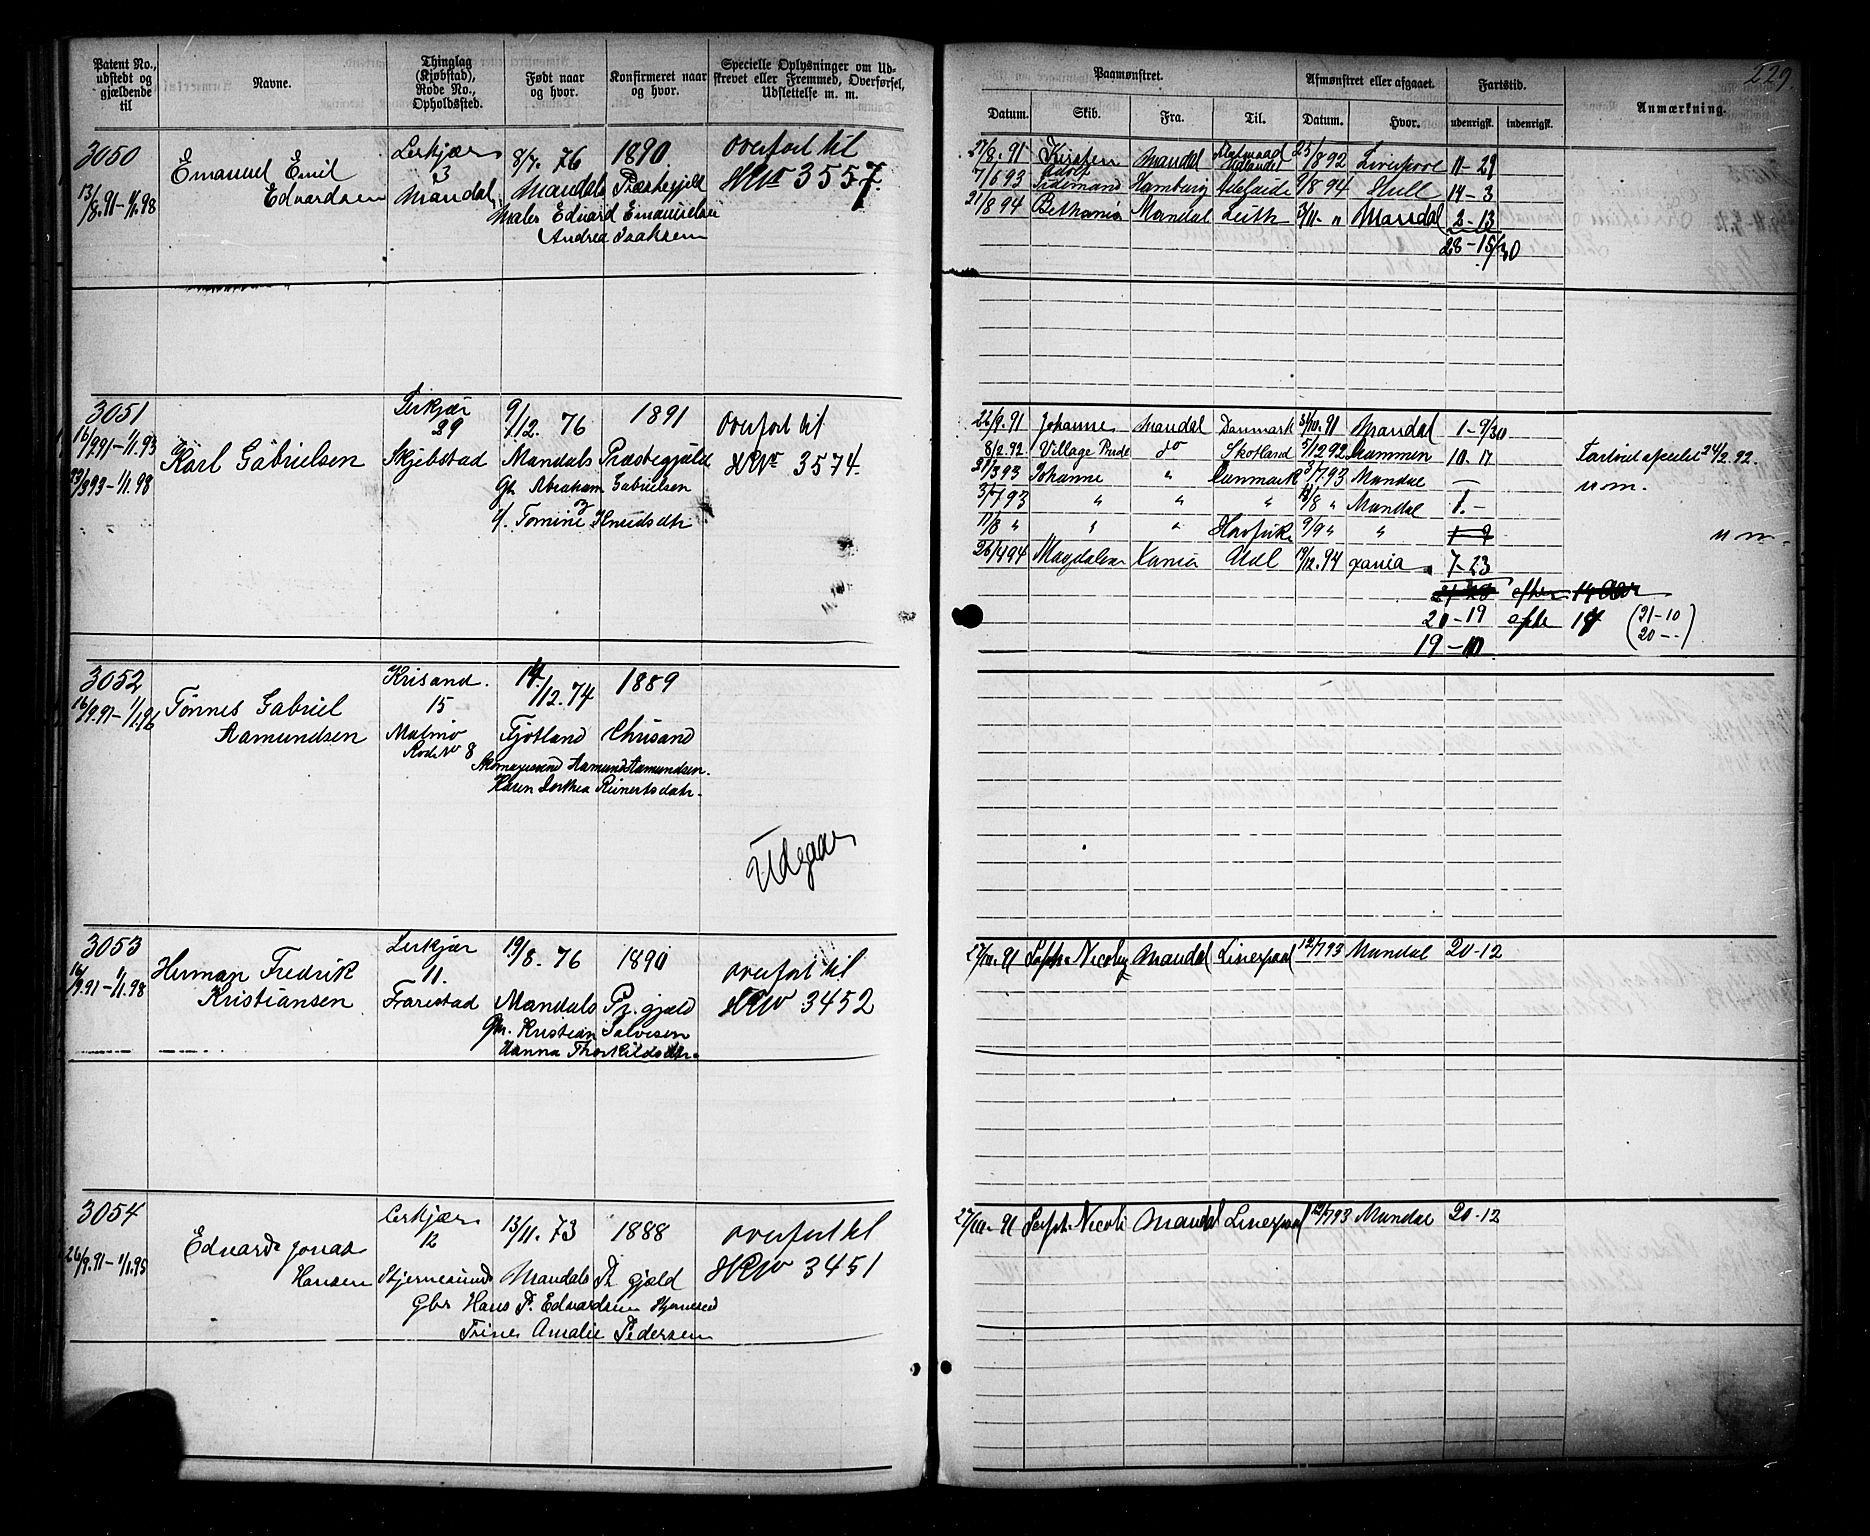 229.
Patent No., udstedt og gjældende til
Navne.
Thinglag (Kjøbstad), Rode No., Opholdssted.
Født naar og hvor.
Konfirmeret naar og hvor.
Specielle Oplysninger om Udstrevet eller Fremmed, Overførsel, Udslettelse m. m.
Paamønstret.
Afmønstret eller afgaaet.
Fartstid.
Anmærkning.
Datum. Skib. Fra. Til. Datum. Hvor. udenrigsk. indenrigsk.
3050 Lerkjær 8/7. 76 1890 Overført til
Emanuel Emil 3 HRNo 3557.
13/8.91-1/1.98 Edvardsen Mandal Mandals Præstegjeld
Maler Edvard Emanuelsen
Andrea Isaksen
27/8.91 Kirsten Mandal 25/8 92 Liverpool 11-29
7/6 93 Hamburg Adelaide 9/8 94 Hull 14-3
21/8 94 Bethania Mandal Leith 3/11 - " Mandal 2-13
28-15/30
3051 Lerkjær 9/12. 76 1891 Overført til
16/9 91-1/1.93 29
Karl Gabrielsen Skjebstad Mandals Præstegjæld HRNo 3574.
23/3 93-1/1.98 Gbr Abraham Gabrielsen
og
Tomine Knudsdtr
22/9.91 Johanne Mandal Danmark 3/10.91 Mandal 1-9/30
8/2.92 Village Pride do Skotland 5/12 92 Drammen 10-17 24/2.92.
21/3 93 Johanne " Danmark 3/7.93 Mandal — u m.
3/7 93 " " " 11/8 " Mandal 1.-
11/8 " " " 9/9 " " 1-9 u m.
26/4 94 Magdalena Xania 14/12.94 Xania 7-23
20-19 efter 14 (21-10
20--)
19-10
3052 Krisand. 14/12.74 1889
16/9.91-1/1.96 Tønnes Gabriel 15
Aamundsen Malmø Fjotland Chrisand
Rode No 8 Aamund Aamundsen.
Karen Dorthea Reinertsdatr.
Udgaar
3053 Lerkjær 19/8. 76 1890 Overført til
16/9.91-1/1.98 Herman Fredrik 11.
Kristiansen Frarestad Mandals Pr. gjæld HRNo 3452
Gbr. Kristian Salvesen
Hanna Thorkildsdtr.
27/10.91 Soph. Nicolay Mandal Liverpool 12/7 93 Mandal 20-12
3054 Lerkjær 13/11. 73 1888 Overført til
26/9.91-1/1.95 Edvard Jonas 12
Hansen Stjernesund Mandals Pr gjæld HRNo 3451
Gbr Hans P. Edvardsen
Trine Amalie Pedersen
27/10.91 Soph. Nicoli Mandal Liverpool 12/7 93 Mandal 20-12